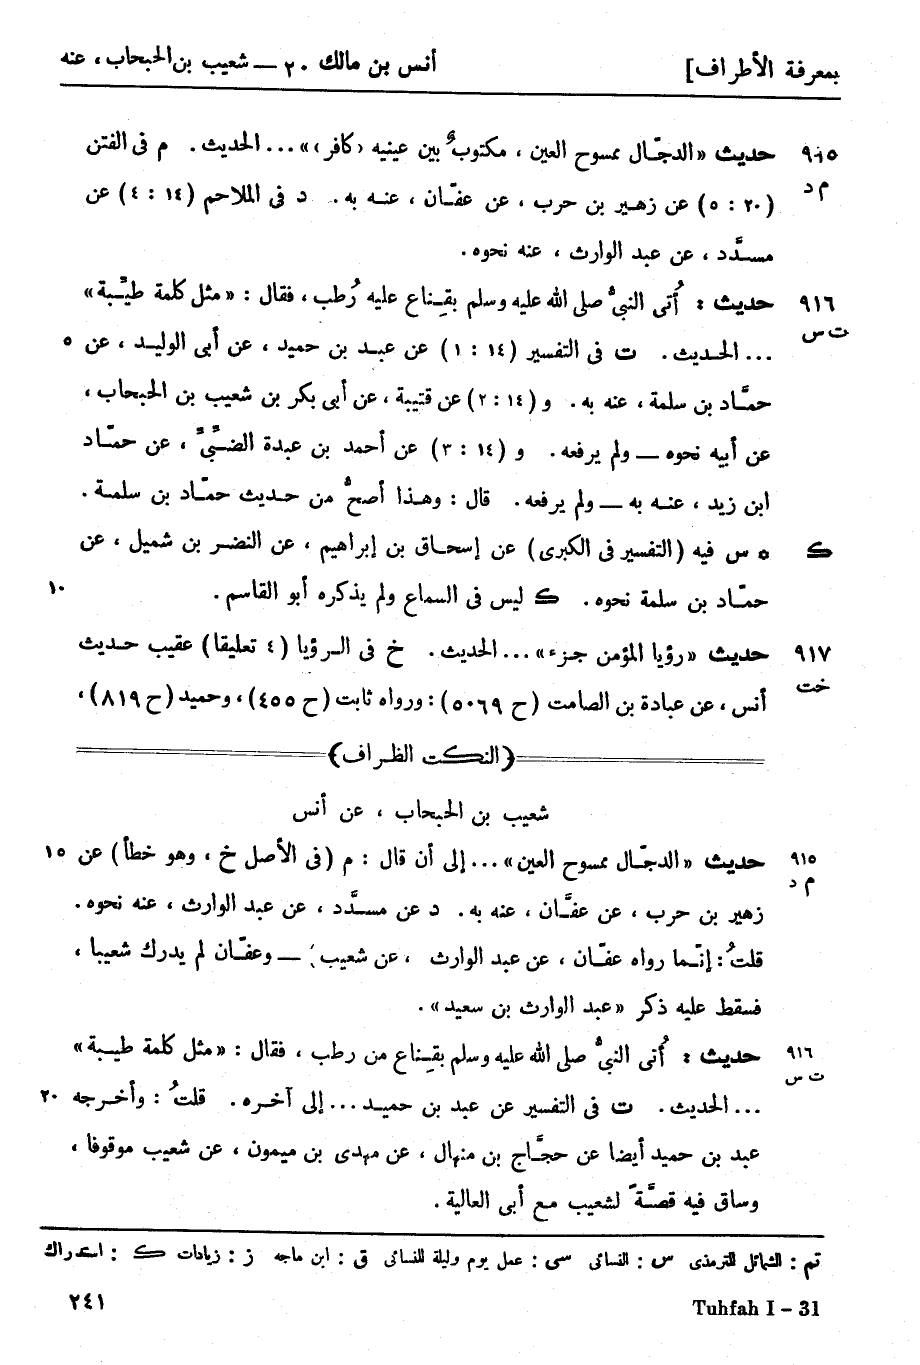 بمعرفة الأطراف] أنس بن مالك ٢٠ — شعيب بن الحبحاب، عنه
٩١٥ حديث «الدجّال ممسوح العين، مكتوبٌ بين عينيه ‹كافر›» ... الحديث. م فى الفتن
م د (٢٠ : ٥) عن زهير بن حرب، عن عفّان، عنه به. د فى الملاحم (١٤ : ٤) عن
مسدَّد، عن عبد الوارث، عنه نحوه.
٩١٦ حديث : أُتى النبيُّ صلى الله عليه وسلم بقِناع عليه رُطب، فقال : «مثل كلمة طيّبة»
ت س ... الحديث. ت فى التفسير (١٤ : ١) عن عبد بن حميد، عن أبى الوليد، عن ٥
حمَّاد بن سلمة، عنه به. و (١٤ : ٢) عن قتيبة، عن أبى بكر بن شعيب بن الحبحاب،
عن أبيه نحوه — ولم يرفعه. و (١٤ : ٣) عن أحمد بن عبدة الضبّيّ، عن حمّاد
ابن زيد، عنه به — ولم يرفعه. قال : وهذا أصحُّ من حديث حمّاد بن سلمة.
ك ٥ س فيه (التفسير فى الكبرى) عن إسحاق بن إبراهيم، عن النضر بن شميل، عن
حمّاد بن سلمة نحوه. ك ليس فى السماع ولم يذكره أبو القاسم. ١٠
٩١٧ حديث «رؤيا المؤمن جزء» ... الحديث. خ فى الرؤيا (٤ تعليقا) عقيب حديث
خت أنس، عن عبادة بن الصامت (ح ٥٠٦٩) : ورواه ثابت (ح ٤٥٥)، وحميد (ح ٨١٩)،
﴿النكت الظراف﴾
شعيب بن الحبحاب، عن أنس
٩١٥ حديث «الدجّال ممسوح العين» ... إلى أن قال : م (فى الأصل خ، وهو خطأ) عن ١٥
م د زهير بن حرب، عن عفَّان، عنه به. د عن مسدَّد، عن عبد الوارث، عنه نحوه.
قلتُ : إنّما رواه عفّان، عن عبد الوارث، عن شعيب؛ — وعفّان لم يدرك شعيبا،
فسقط عليه ذكر «عبد الوارث بن سعيد».
٩١٦ حديث : أُتى النبيُّ صلى الله عليه وسلم بقِناع من رطب، فقال : «مثل كلمة طيبة»
ت س ... الحديث. ت فى التفسير عن عبد بن حميد ... إلى آخره. قلتُ : وأخرجه ٢٠
عبد بن حميد أيضا عن حجَّاج بن منهال، عن مهدى بن ميمون، عن شعيب موقوفا،
وساق فيه قصَّةً لشعيب مع أبى العالية.
تم : الشمائل للترمذى س : النسائى سى : عمل يوم وليلة للنسائى ق : ابن ماجه ز : زيادات ك : استدراك
Tuhfah I – 31 ٢٤١